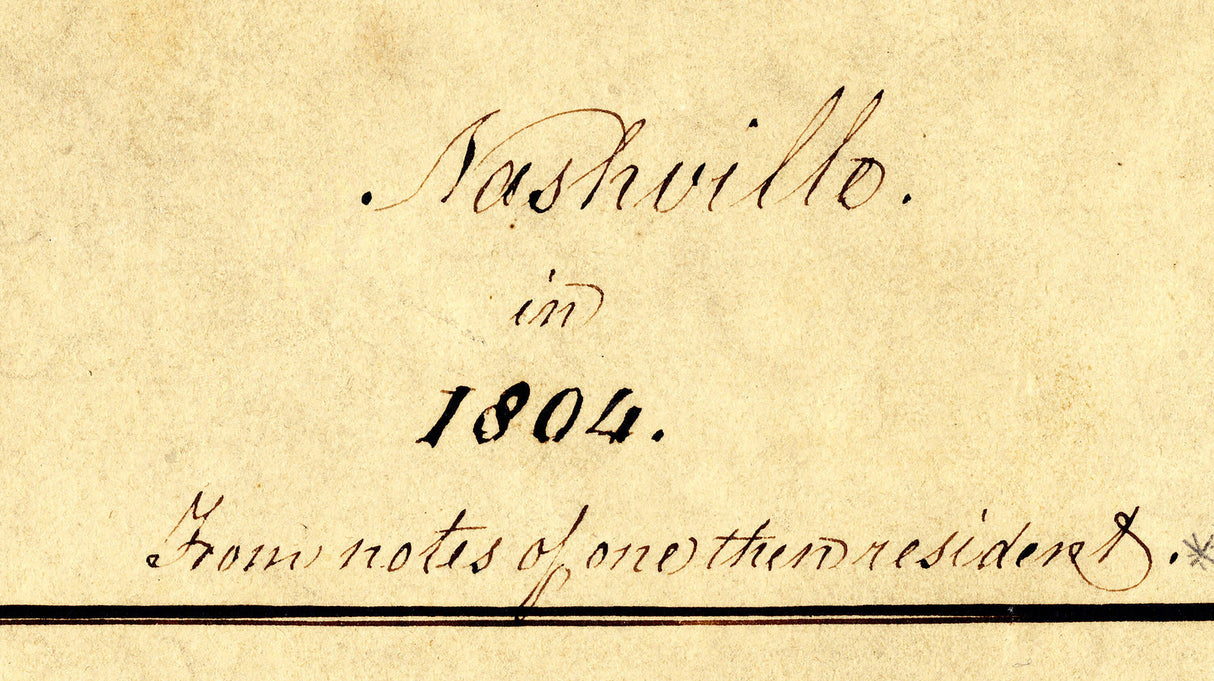 Nashville.
in
1804.
From notes of one then resident.*